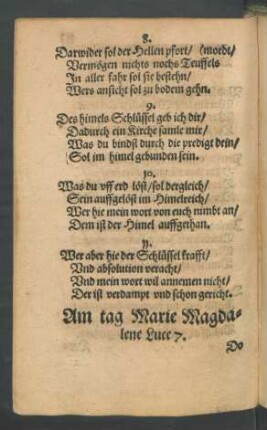 8.
Darwider sol der Hellen pfort/ (mordt/
Vermögen nichts nochs Teuffels
In aller fahr sol sie bestehn/
Wers ansicht sol zu bodem gehn.
9.
Des himels Schlüssel geb ich dir/
Dadurch ein Kirche samle mir/
Was du bindst durch die predigt dein/
Sol im himel gebunden sein.
10.
Was du vff erd löst/ sol dergleich/
Sein auffgelöst im Himelreich/
Wer hie mein wort von euch nimbt an/
Dem ist der Himel auffgethan.
11.
Wer aber hie der Schlüssel krafft/
Vnd absolution veracht/
Vnd mein wort wil annemen nicht/
Der ist verdampt vnd schon gericht.
Am tag Marie Magda-
lene Luce 7.
Do